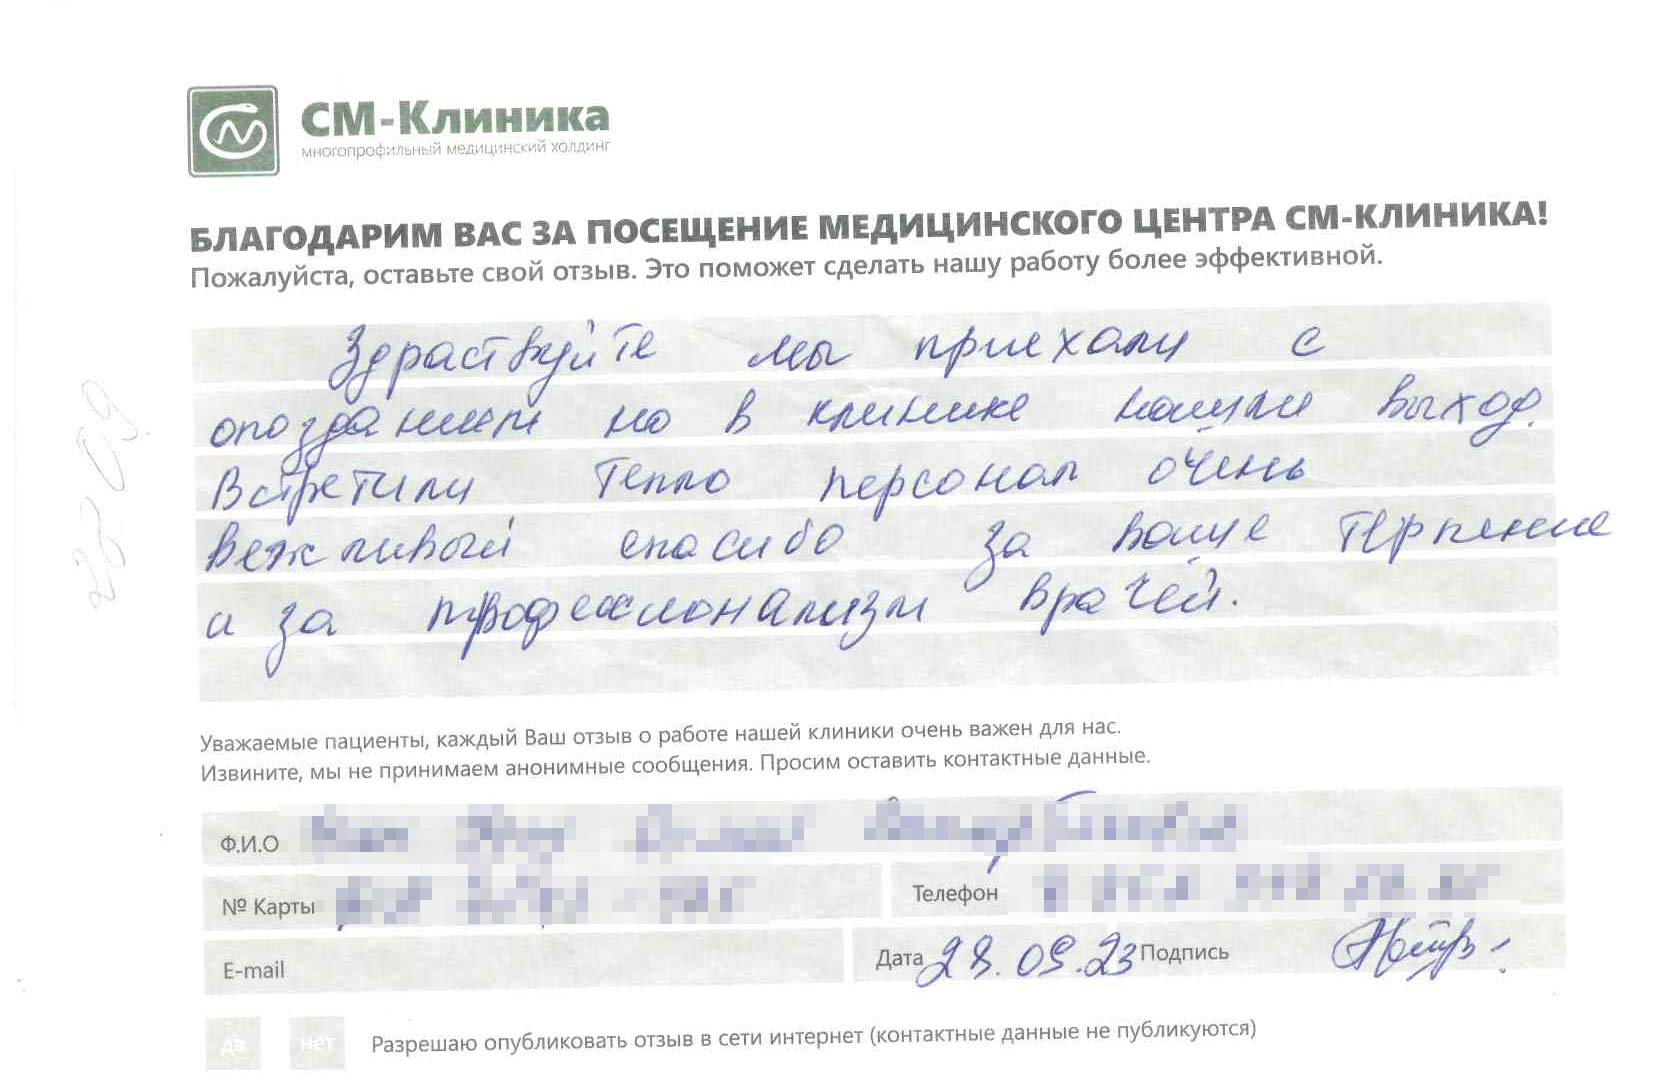 СМ-Клиника
многопрофильный медицинский холдинг
БЛАГОДАРИМ ВАС ЗА ПОСЕЩЕНИЕ МЕДИЦИНСКОГО ЦЕНТРА СМ-КЛИНИКА!
Пожалуйста, оставьте свой отзыв. Это поможет сделать нашу работу более эффективной.
Здраствуйте мы приехали с
опозданием но в клинике нашли выход.
Встретили тепло персонал очень
вежливый спасибо за ваше терпение
и за профессионализм врачей.
28.09
Уважаемые пациенты, каждый Ваш отзыв о работе нашей клиники очень важен для нас.
Извините, мы не принимаем анонимные сообщения. Просим оставить контактные данные.
Ф.И.О
№ Карты Телефон
E-mail Дата 28.09.23 Подпись
да нет Разрешаю опубликовать отзыв в сети интернет (контактные данные не публикуются)